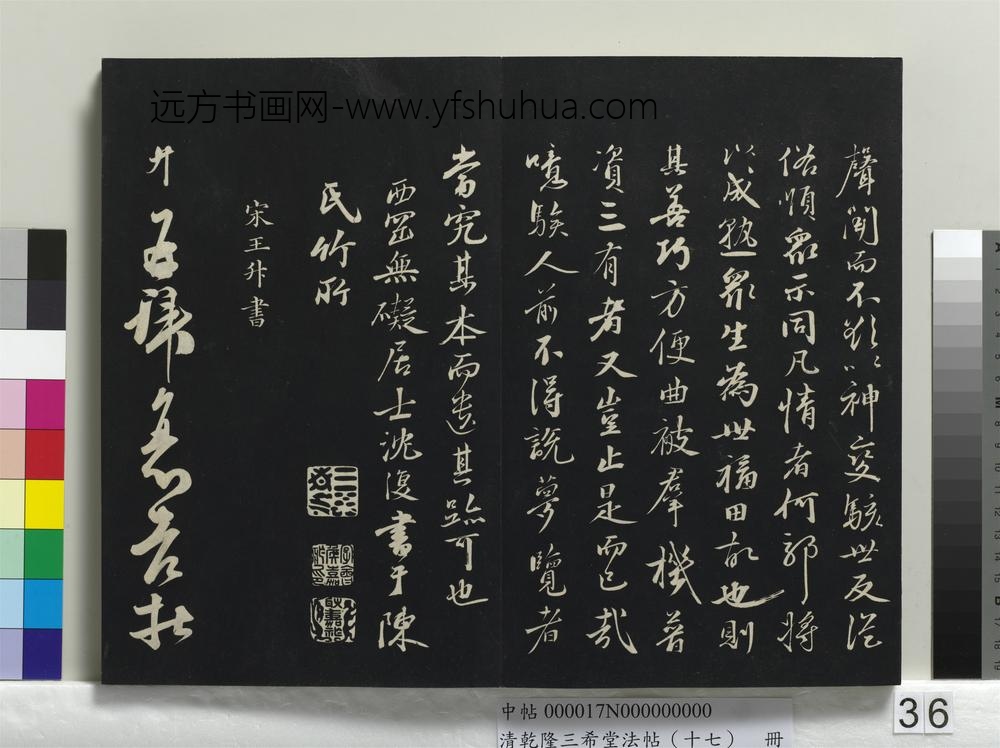 远方书画网-www.yfshuhua.com
聲聞而不欲以神變駭世反從
俗順眾示同凡情者何耶將
以成熟眾生為世福田故也則
其善巧方便曲破群機普
資三有者又豈止是而已哉
噫騃人前不得說夢覽者
當究其本而遺其跡可也
西菴無礙居士沈復書于陳
氏竹所
宋王升書
升再拜
中帖 000017N000000000
清乾隆三希堂法帖（十七） 冊
36